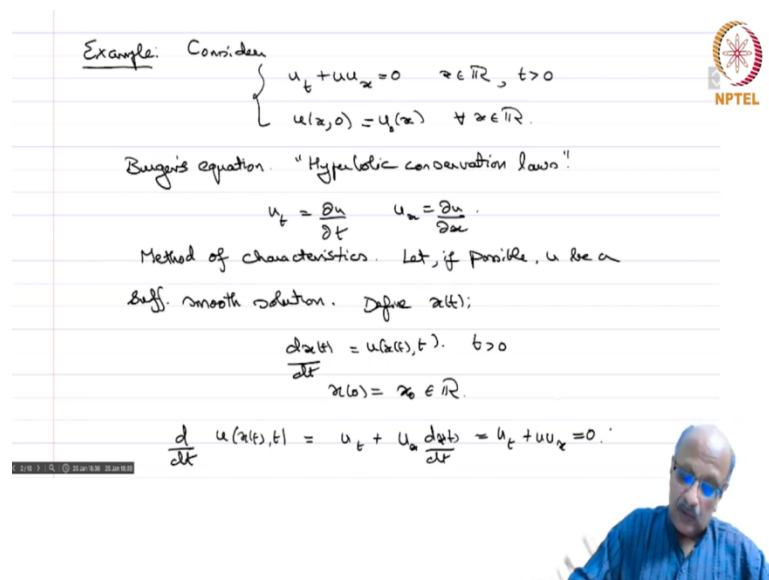 Example: Consider
u_t + uu_x = 0 x ∈ ℝ, t > 0
u(x,0) = u_0(x) ∀ x ∈ ℝ.
NPTEL
Burger's equation. "Hyperbolic conservation laws".
u_t = ∂u/∂t u_x = ∂u/∂x.
Method of characteristics. Let, if possible, u be a
suff. smooth solution. Define x(t);
dx(t)/dt = u(x(t),t). t>0
x(0) = x_0 ∈ ℝ.
d/dt u(x(t),t) = u_t + u_x dx(t)/dt = u_t + uu_x = 0.